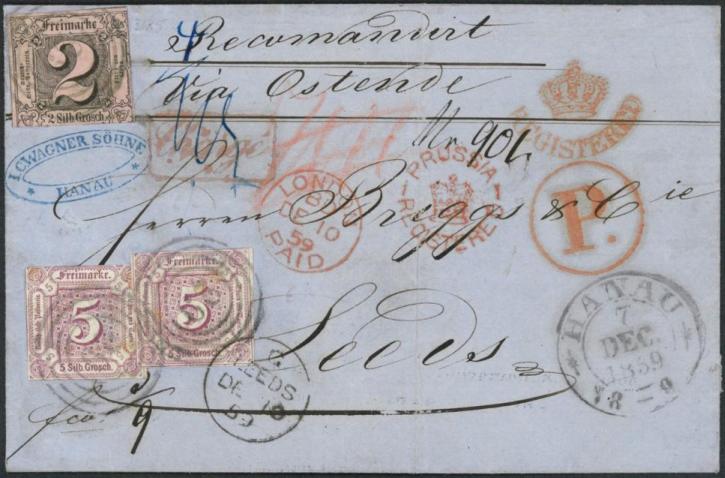 Freimarke
2
2 Silb Grosch.
Recomandirt
Via Ostende
I CWAGNER SÖHNE
HANAU
Nr 901.
REGISTERED
LONDON
DE 10
59
PAID
PRUSSIA
REGISTERED
P.
Herren Briggs & Cie
Leeds
Freimarke.
5
5 Silb. Grosch.
Freimarke.
5
5 Silb. Grosch.
HANAU
7
DEC.
1859
8 = 9
LEEDS
DE 10
59
fco.
9